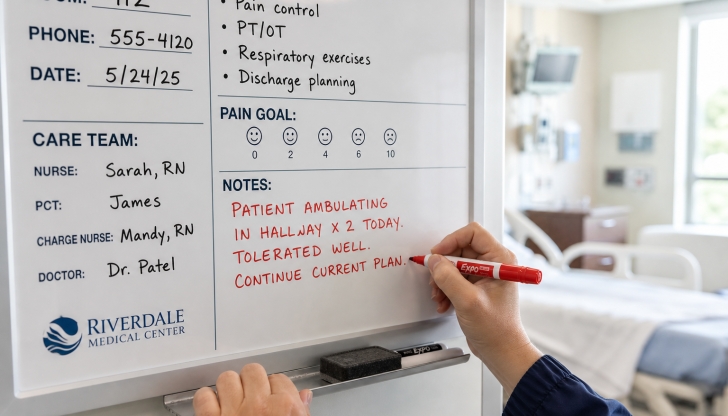 PHONE: 555-4120
DATE: 5/24/25
CARE TEAM:
NURSE: Sarah, RN
PCT: James
CHARGE NURSE: Mandy, RN
DOCTOR: Dr. Patel
RIVERDALE
MEDICAL CENTER
• Pain control
• PT/OT
• Respiratory exercises
• Discharge planning
PAIN GOAL:
0 2 4 6 10
NOTES:
PATIENT AMBULATING
IN HALLWAY X 2 TODAY.
TOLERATED WELL.
CONTINUE CURRENT PLAN.
EXPO
EXPO